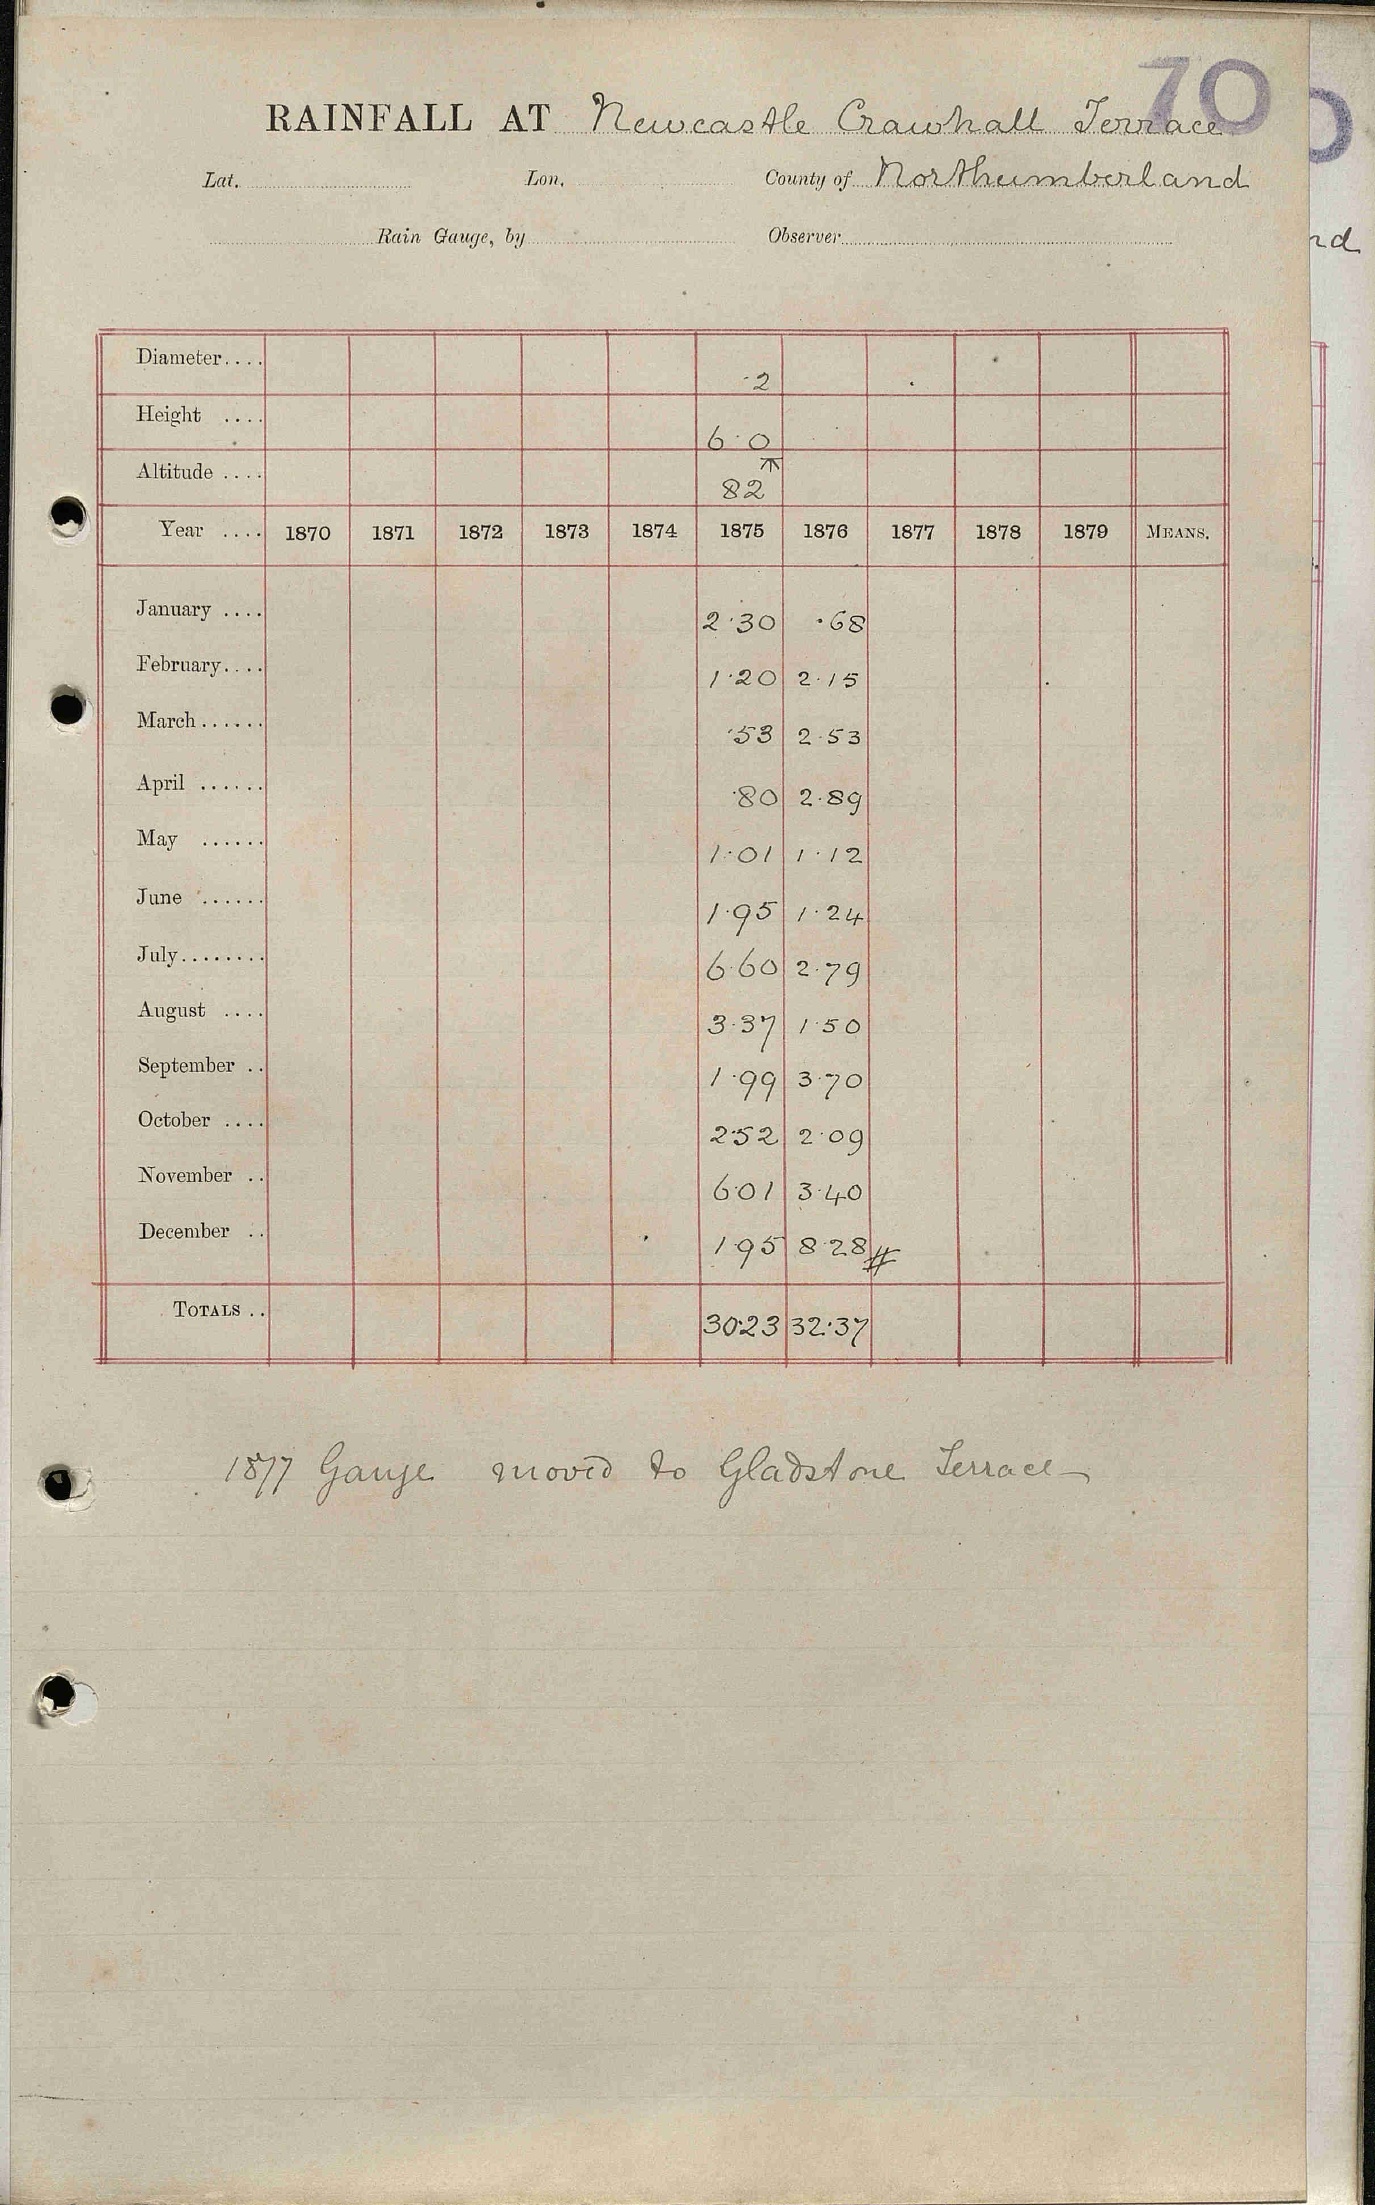 70
RAINFALL AT Newcastle Crawhall Terrace
Lat. Lon. County of Northumberland
Rain Gauge, by Observer
nd
Diameter.... ·2
Height .... 6·0
Altitude .... 82
Year .... 1870 1871 1872 1873 1874 1875 1876 1877 1878 1879 MEANS.
January .... 2·30 ·68
February.... 1·20 2·15
March...... ·53 2·53
April ...... ·80 2·89
May ...... 1·01 1·12
June ...... 1·95 1·24
July........ 6·60 2·79
August .... 3·37 1·50
September .. 1·99 3·70
October .... 2·52 2·09
November .. 6·01 3·40
December .. 1·95 8·28#
TOTALS .. 30·23 32·37
1877 Gauge moved to Gladstone Terrace